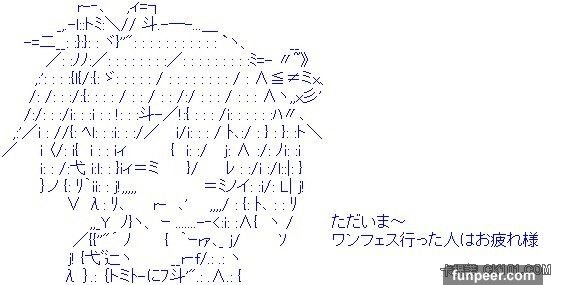 ただいま～
ワンフェス行った人はお疲れ様
CK101.COM
funpeer.com